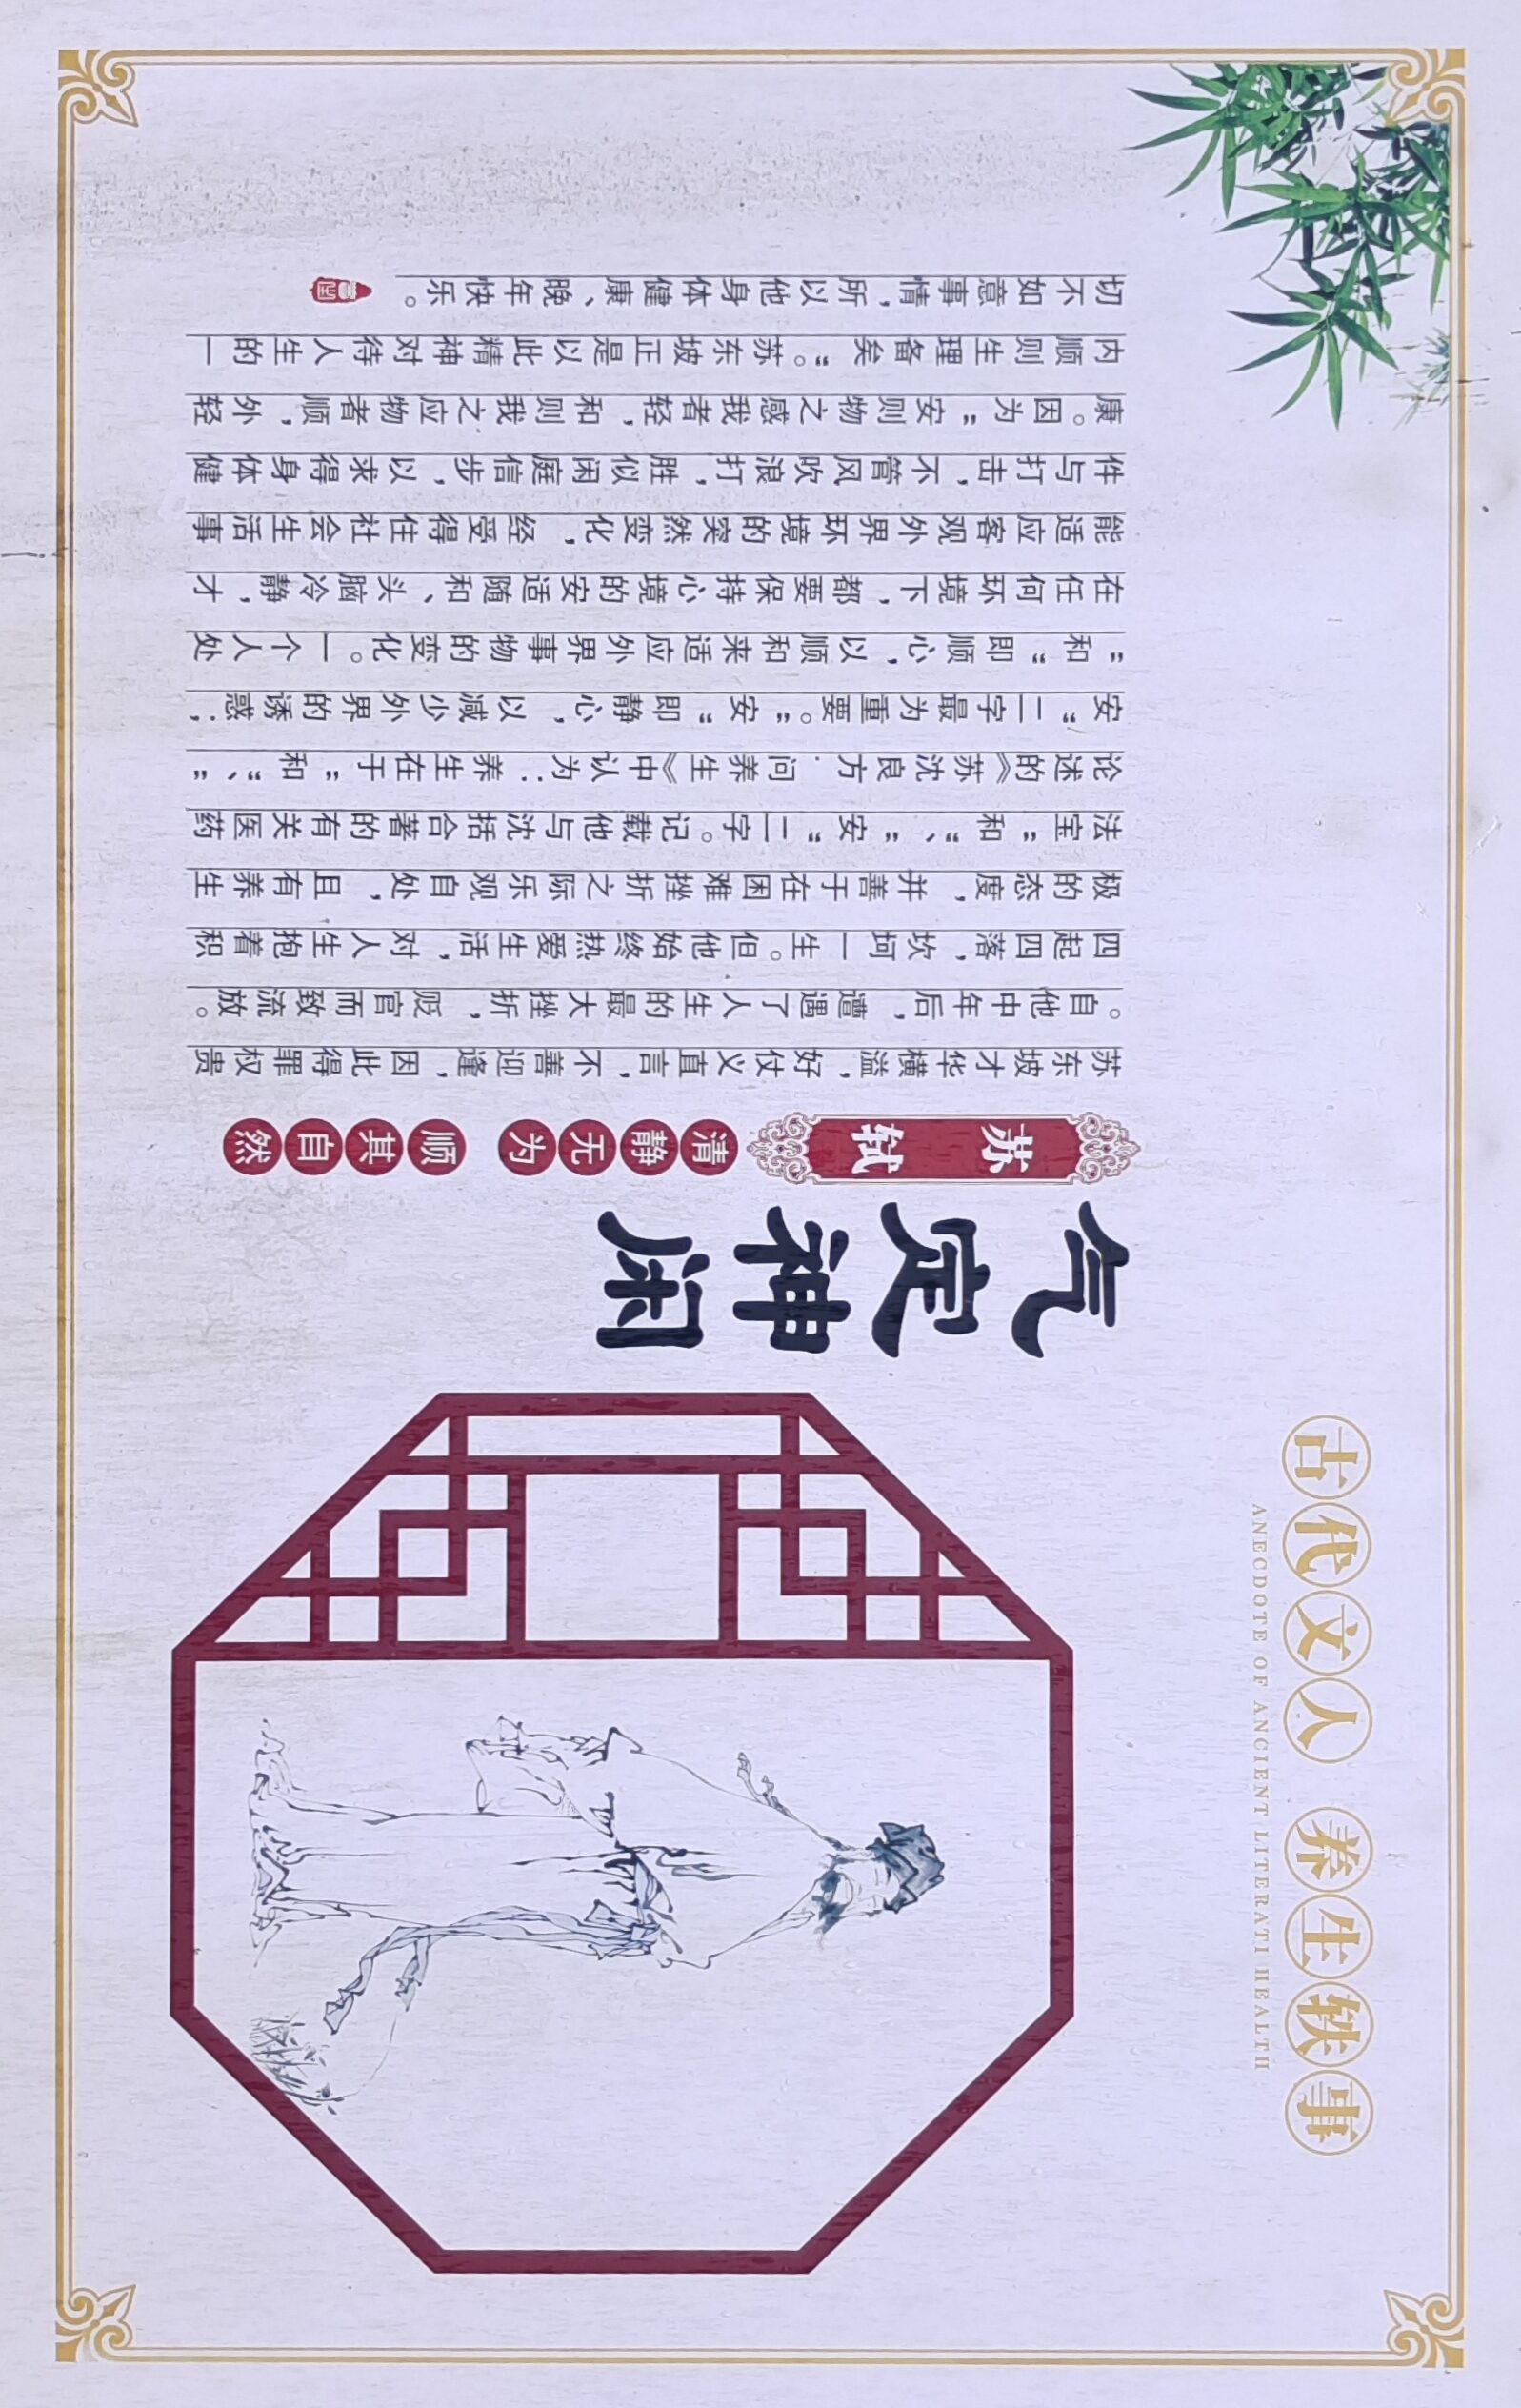 古代文人 养生轶事
ANECDOTE OF ANCIENT LITERATI HEALTH
气定神闲
苏轼
清静无为 顺其自然
苏东坡才华横溢，好仗义直言，不善迎逢，因此得罪权贵
。自他中年后，遭遇了人生的最大挫折，贬官而致流放。
四起四落，坎坷一生。但他始终热爱生活，对人生抱着积
极的态度，并善于在困难挫折之际乐观自处，且有养生
法宝“和”、“安”二字。记载他与沈括合著的有关医药
论述的《苏沈良方·问养生》中认为：养生在于“和”、“
安”二字最为重要。“安”即静心，以减少外界的诱惑；
“和”即顺心，以顺和来适应外界事物的变化。一个人处
在任何环境下，都要保持心境的安适随和、头脑冷静，才
能适应客观外界环境的突然变化，经受得住社会生活事
件与打击，不管风吹浪打，胜似闲庭信步，以求得身体健
康。因为“安则物之感我者轻，和则我之应物者顺，外轻
内顺则生理备矣”。苏东坡正是以此精神对待人生的一
切不如意事情，所以他身体健康、晚年快乐。